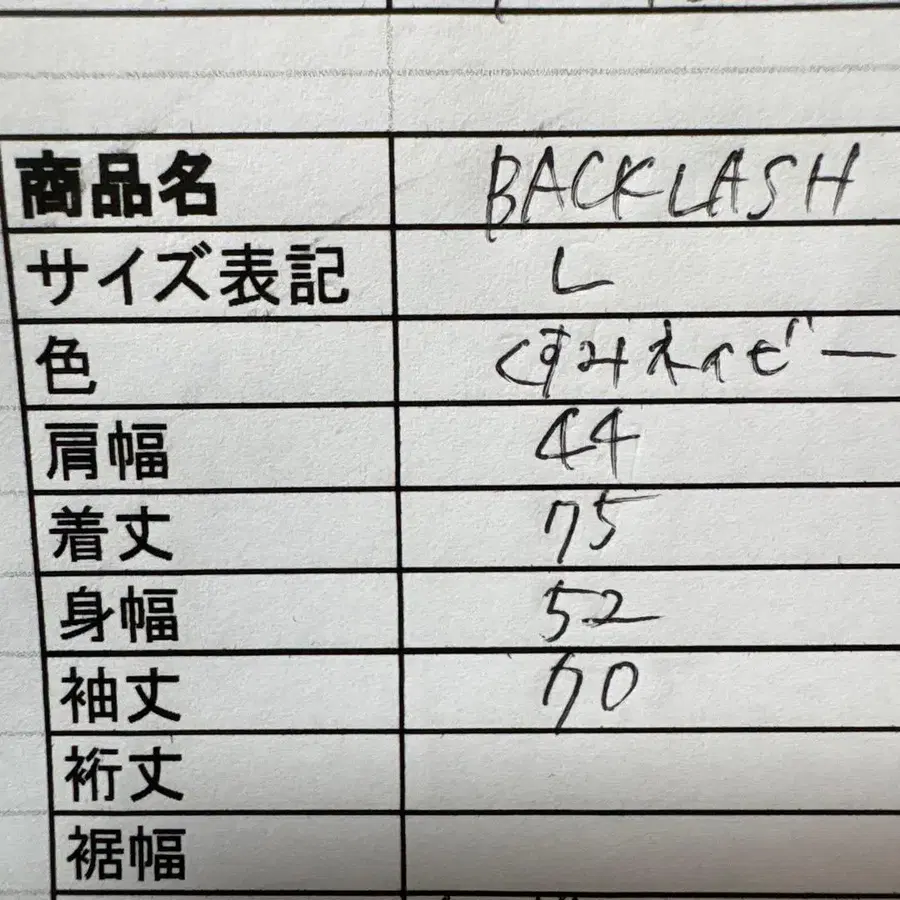 商品名 BACKLASH
サイズ表記 L
色 くすみネイビー
肩幅 44
着丈 75
身幅 52
袖丈 70
裄丈
裾幅